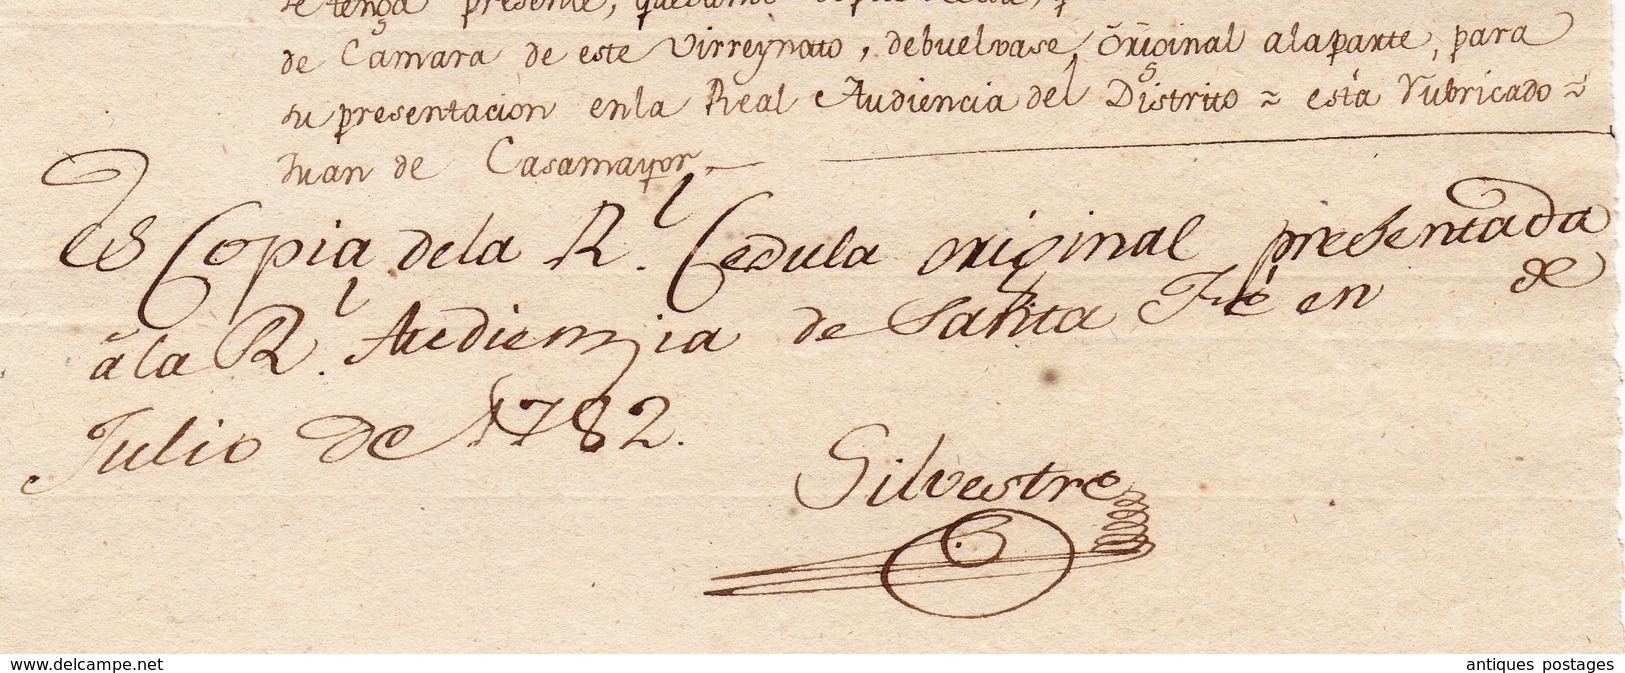 se tenga presente, quedando
de Cámara de este Virreynato, debuelvase, original alaparte, para
su presentacion enla Real Audiencia del Distrito = està rubricado =
Juan de Casamayor
Es Copia dela Rl. Cedula original presentada
âla Rl. Audienzia de Santa Fé en de
Julio de 1782.
Silvestre
www.delcampe.net
antiques postages